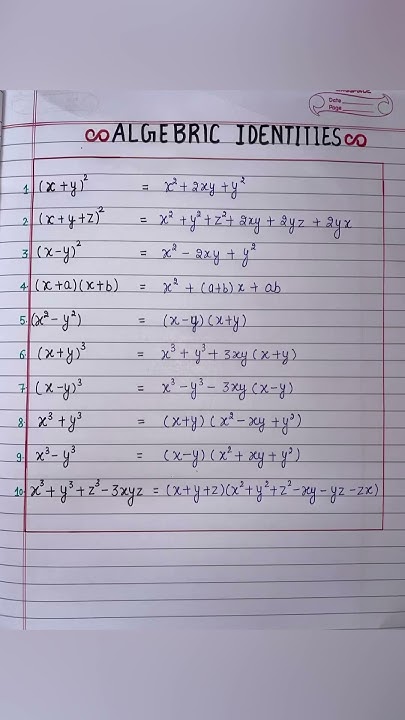 Date
Page
ALGEBRIC IDENTITIES
1. (x+y)² = x² + 2xy + y²
2. (x+y+z)² = x² + y² + z² + 2xy + 2yz + 2yx
3. (x-y)² = x² - 2xy + y²
4. (x+a)(x+b) = x² + (a+b)x + ab
5. (x² - y²) = (x-y)(x+y)
6. (x+y)³ = x³ + y³ + 3xy(x+y)
7. (x-y)³ = x³ - y³ - 3xy(x-y)
8. x³ + y³ = (x+y)(x² - xy + y²)
9. x³ - y³ = (x-y)(x² + xy + y²)
10. x³ + y³ + z³ - 3xyz = (x+y+z)(x² + y² + z² - xy - yz - zx)